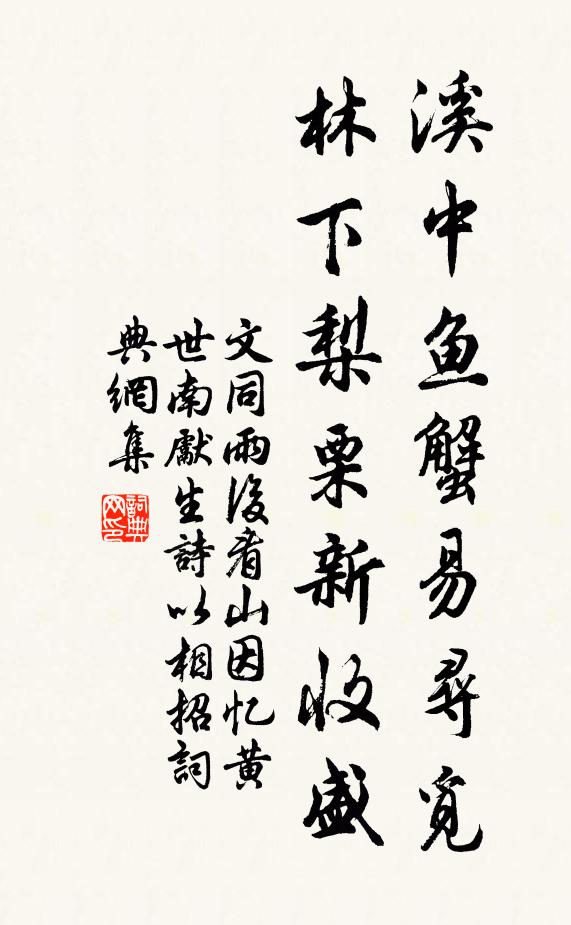 溪中鱼蟹易尋覓
林下梨栗新收盛
文同雨後看山因忆黄
世南獻生詩以相招詞
典網集
詞典網印